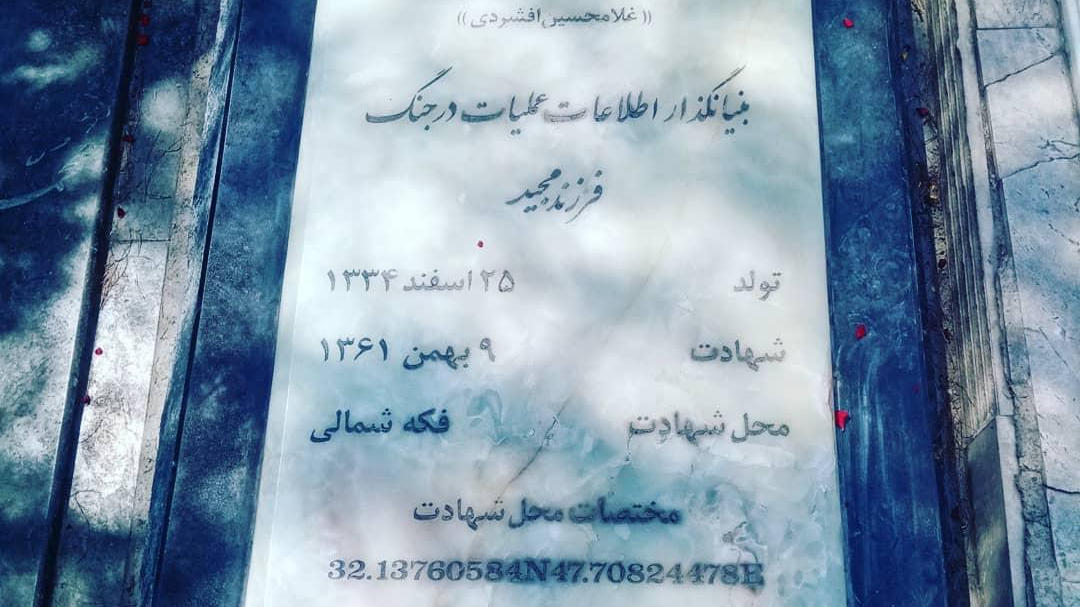 (( غلامحسین افشردی ))
بنیانگذار اطلاعات عملیات در جنگ
فرزند مجید
تولد ۲۵ اسفند ۱۳۳۴
شهادت ۹ بهمن ۱۳۶۱
محل شهادت فکه شمالی
مختصات محل شهادت
32.13760584N47.70824478E